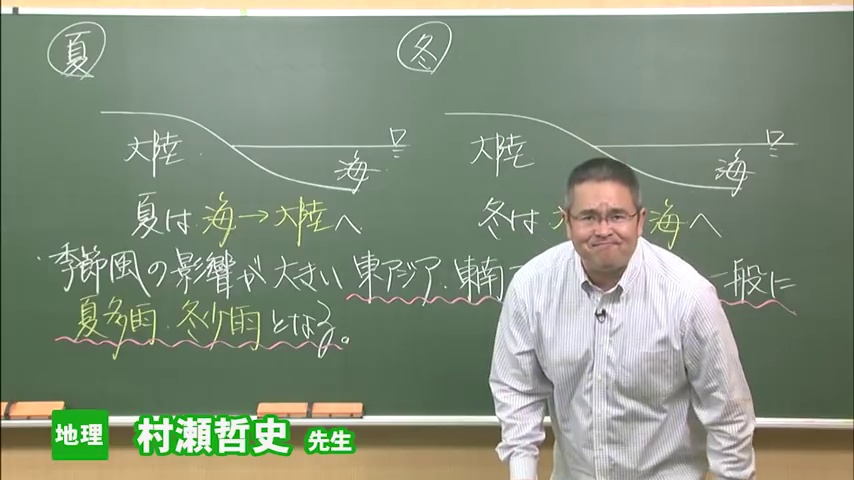 夏
冬
大陸 海
大陸 海
夏は 海→大陸へ
冬は 海へ
季節風の影響が大きい 東アジア・東南 一般に
夏多雨・冬少雨となる。
地理 村瀬哲史 先生